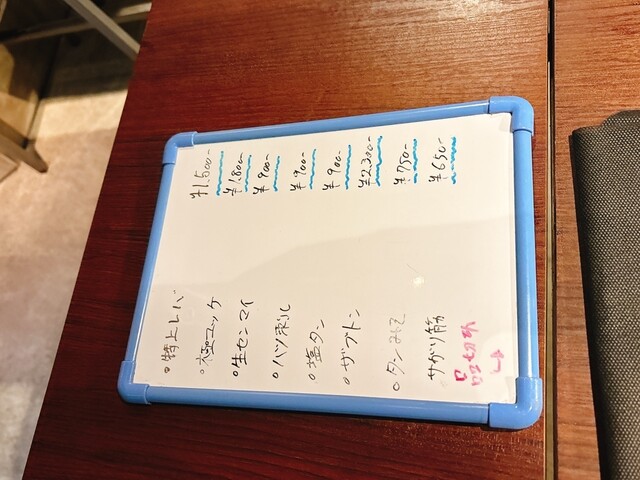 ・特上レバ ¥1,500-
・極ユッケ ¥1,800-
・生センマイ ¥900-
・ハツ刺し ¥900-
・塩タン ¥900-
・ザブトン ¥2,300-
・タン ¥750-
サガリ筋 ¥650-
品切れ